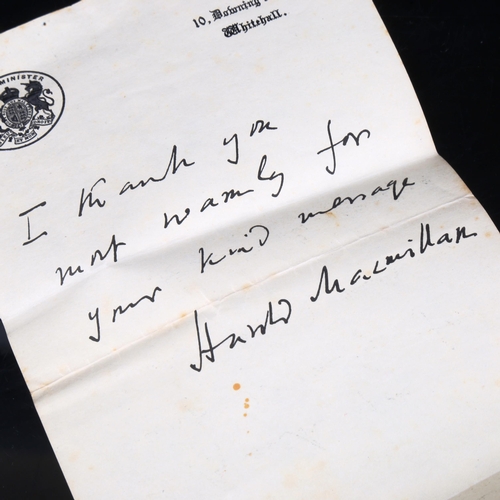 10, Downing
Whitehall.
MINISTER
I thank you
most warmly for
your kind message
Harold Macmillan